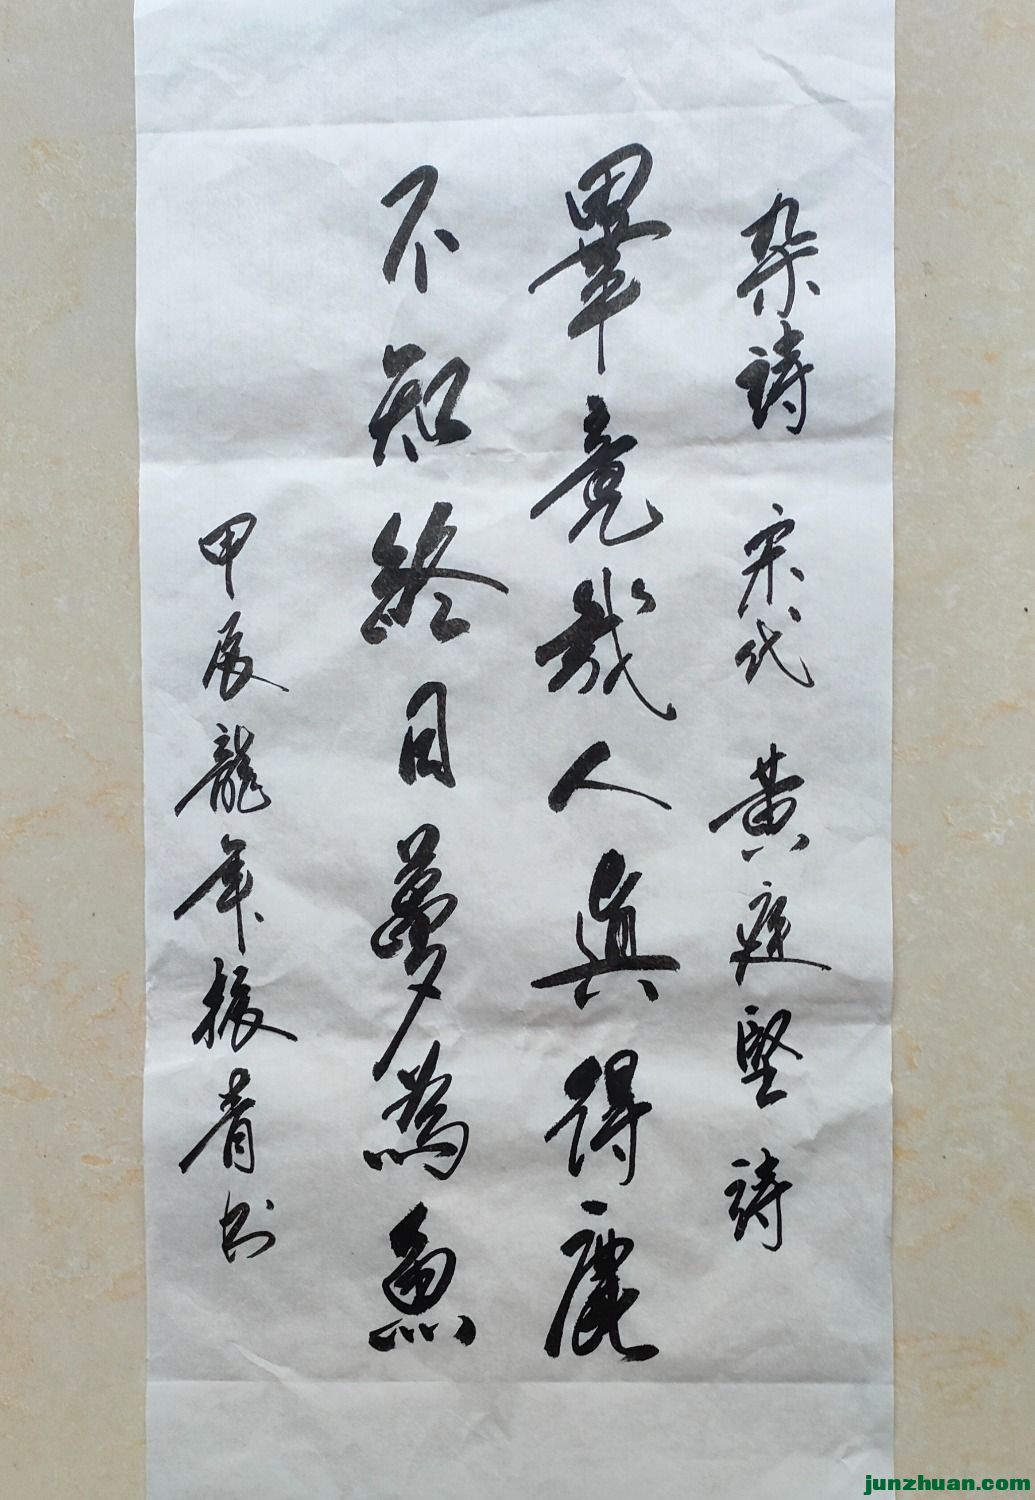 杂詩 宋代 黄庭堅 詩
畢竟哉人真得鹿
不知終日夢為魚
甲辰龍年振青书
junzhuan.com